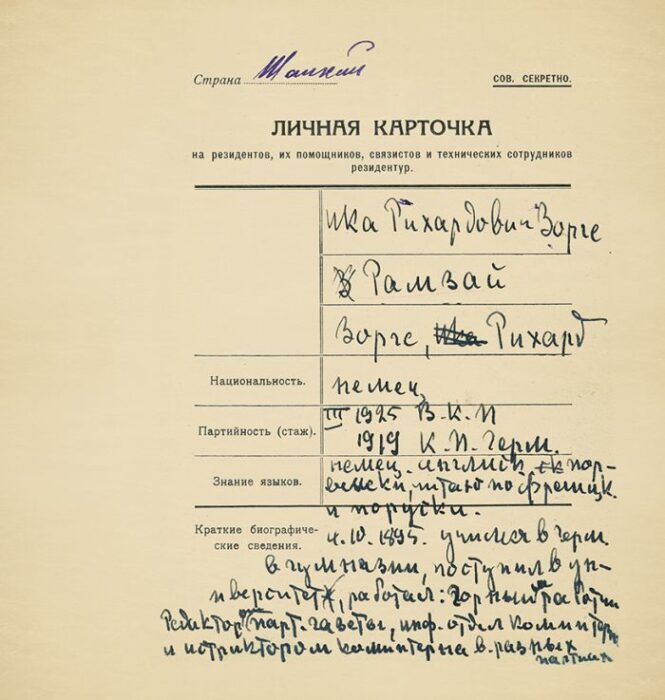 Страна Шанхай
СОВ. СЕКРЕТНО.
ЛИЧНАЯ КАРТОЧКА
на резидентов, их помощников, связистов и технических сотрудников
резидентур.
ика Рихардович Зорге
Рамзай
Зорге, Рихард
Национальность. немец
Партийность (стаж). III 1925 В.К.П
1919 К.П. Герм.
Знание языков. немец. английск. нор-
вежски, читаю по француск.
и поруски.
Краткие биографиче-
ские сведения. 4.10.1895. учился в Герм.
в гумназии, поступил в ун-
иверситет, работал: горный рабочии
Редактор парт. газеты, инф. отдел Коминтерн
и иструктором коминтерна в разных
партиах